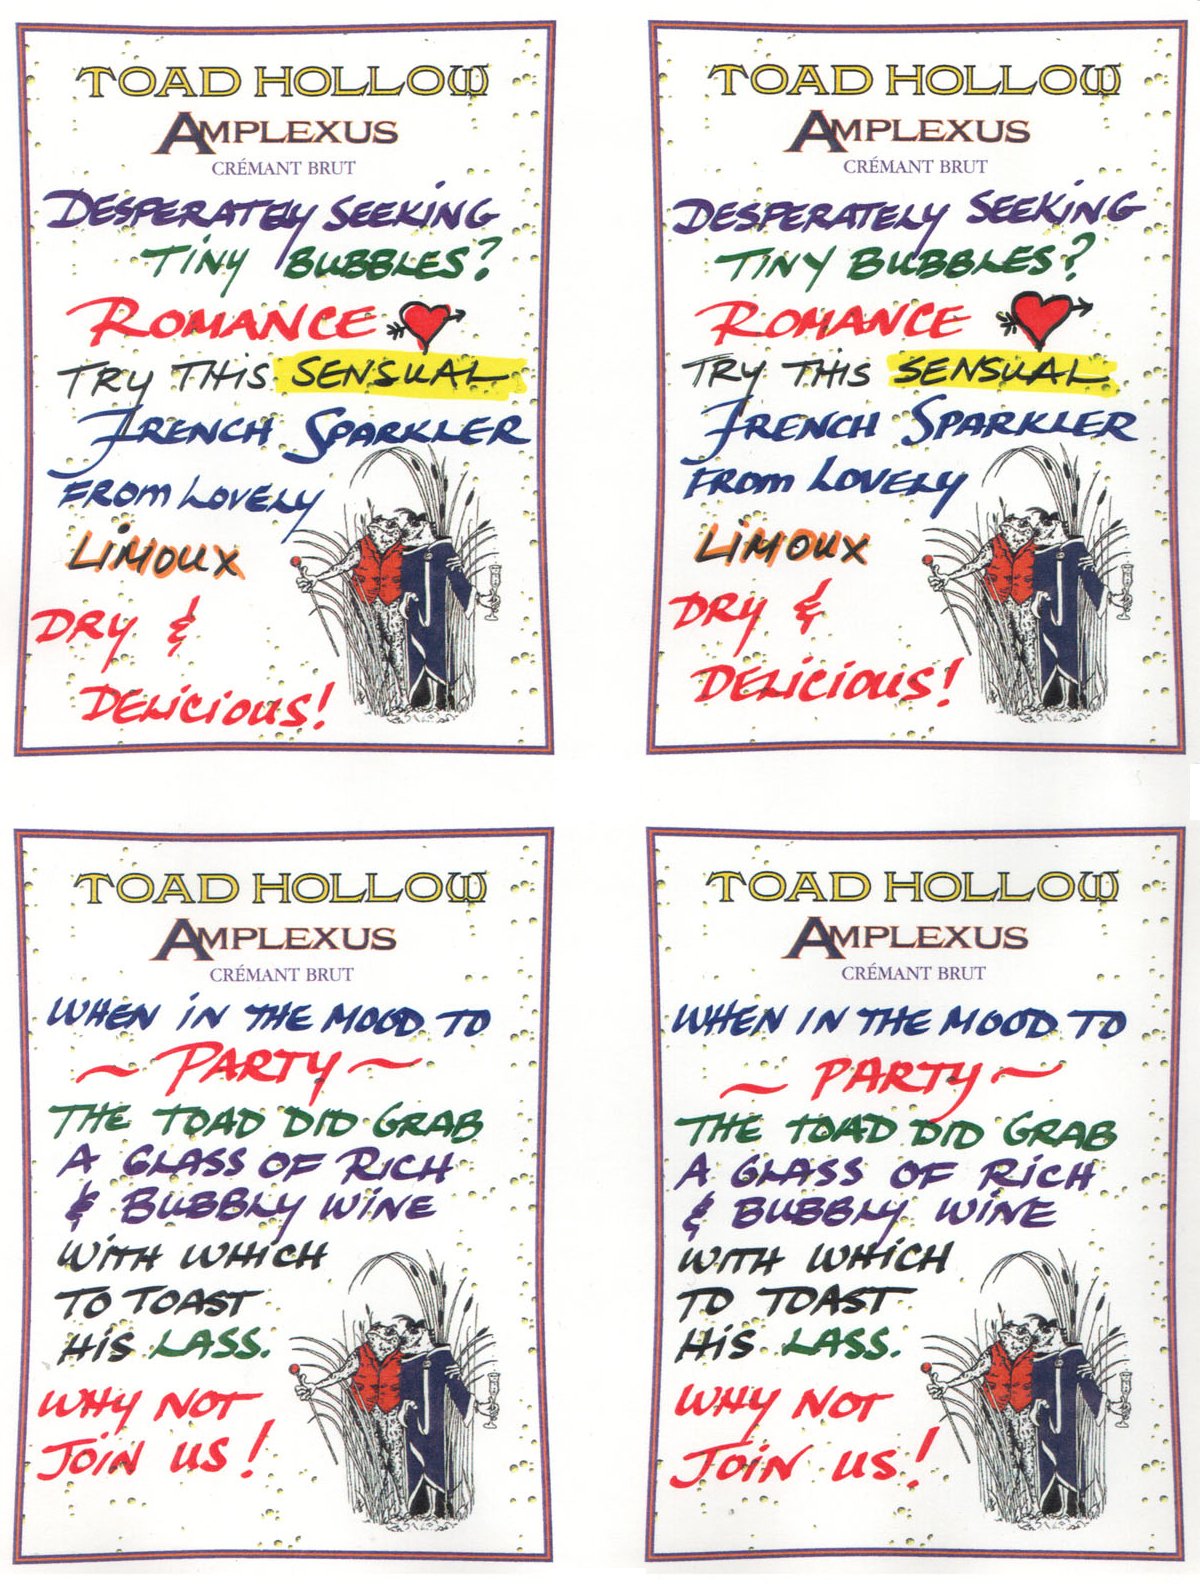 TOAD HOLLOW
AMPLEXUS
CRÉMANT BRUT
DESPERATELY SEEKING
TINY BUBBLES?
ROMANCE
TRY THIS SENSUAL
FRENCH SPARKLER
FROM LOVELY
LIMOUX
DRY &
DELICIOUS!
TOAD HOLLOW
AMPLEXUS
CRÉMANT BRUT
DESPERATELY SEEKING
TINY BUBBLES?
ROMANCE
TRY THIS SENSUAL
FRENCH SPARKLER
FROM LOVELY
LIMOUX
DRY &
DELICIOUS!
TOAD HOLLOW
AMPLEXUS
CRÉMANT BRUT
WHEN IN THE MOOD TO
~ PARTY ~
THE TOAD DID GRAB
A GLASS OF RICH
& BUBBLY WINE
WITH WHICH
TO TOAST
HIS LASS.
WHY NOT
JOIN US!
TOAD HOLLOW
AMPLEXUS
CRÉMANT BRUT
WHEN IN THE MOOD TO
~ PARTY ~
THE TOAD DID GRAB
A GLASS OF RICH
& BUBBLY WINE
WITH WHICH
TO TOAST
HIS LASS.
WHY NOT
JOIN US!